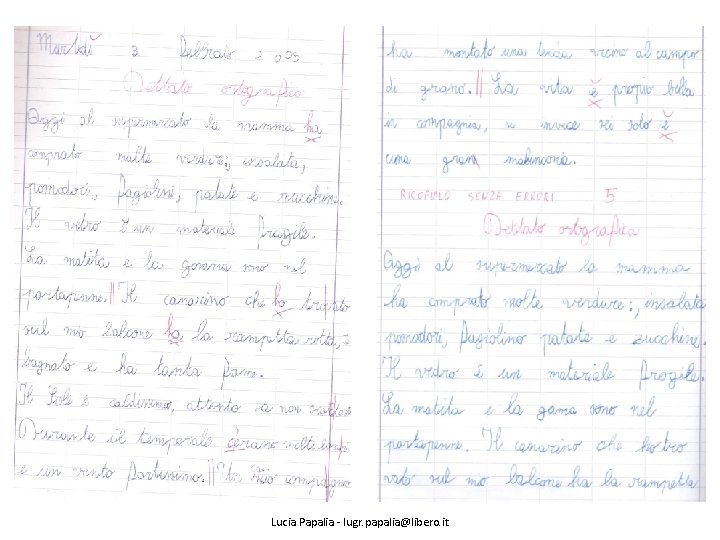 Martedì 3 febbraio 2009
Dettato ortografico
Oggi al supermercato la mamma ha
comprato molte verdure:, insalata,
pomodori, fagiolini, patate e zucchine.
Il vetro è un materiale fragile.
La matita e la gomma sono nel
portapenne. Il canarino che ho trovato
sul mio balcone ha la zampetta rotta, è
bagnato e ha tanta fame.
Il Sole è caldissimo, attento a non
Durante il temporale c'erano molte
e un vento fortissimo. Un mio compagno
ha montato una tenda vicino al campo
di grano. La vita è propio bella
in compagnia, se invece sei solo è
una gran malinconia.
RICOPIALO SENZA ERRORI 5
Dettato ortografico
Oggi al supermercato la mamma
ha comprato molte verdure:, insalata
pomodori, fagiolino patate e zucchine.
Il vedro è un materiale fragile.
La matita e la gama sono nel
portapenne. Il canarino che ho tro
vato sul mio balcone ha la zampetta
Lucia Papalia - lugr.papalia@libero.it